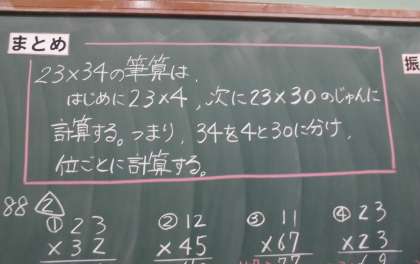 まとめ
振
23×34の筆算は、
はじめに23×4、次に23×30のじゅんに
計算する。つまり、34を4と30に分け、
位ごとに計算する。
88 ②
① 23 ② 12 ③ 11 ④ 23
×32 ×45 ×67 ×23
77 69